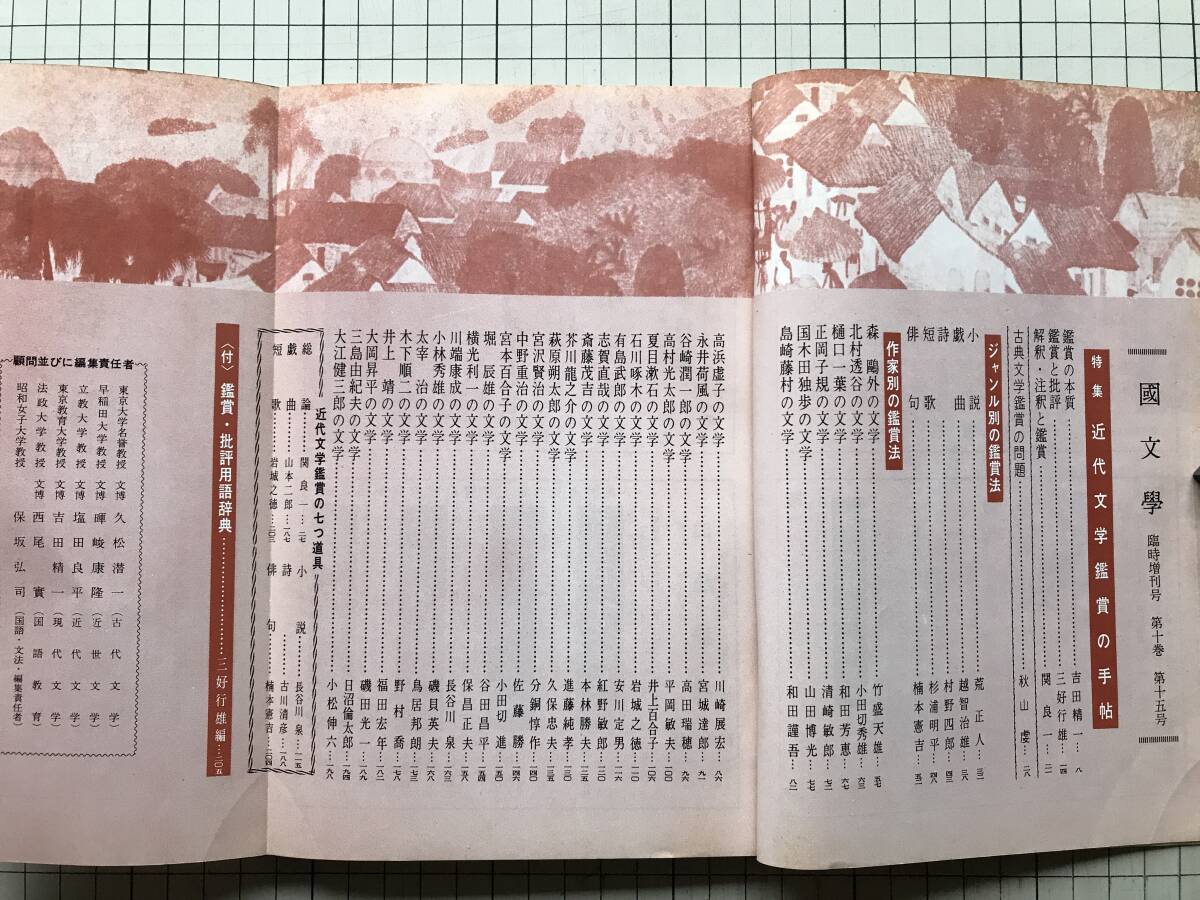 國文學 臨時増刊号 第十巻 第十五号
特集 近代文学鑑賞の手帖
鑑賞の本質…吉田精一…八
鑑賞と批評…三好行雄…一四
解釈・注釈と鑑賞…関良一…二一
古典文学鑑賞の問題…秋山虔…二八
ジャンル別の鑑賞法
小説…荒正人…三二
戯曲…越智治雄…三八
詩…村野四郎…四三
短歌…杉浦明平…四八
俳句…楠本憲吉…五三
作家別の鑑賞法
森鷗外の文学…竹盛天雄…五七
北村透谷の文学…小田切秀雄…六三
樋口一葉の文学…和田芳恵…六七
正岡子規の文学…清崎敏郎…七二
国木田独歩の文学…山田博光…七七
島崎藤村の文学…和田謹吾…八二
高浜虚子の文学…川崎展宏…八六
永井荷風の文学…宮城達郎…九一
谷崎潤一郎の文学…高田瑞穂…九六
高村光太郎の文学…平岡敏夫
夏目漱石の文学…井上百合子…一〇六
石川啄木の文学…岩城之徳…一一〇
有島武郎の文学…安川定男…一一六
志賀直哉の文学…紅野敏郎…一二〇
斎藤茂吉の文学…本林勝夫…一二五
芥川龍之介の文学…進藤純孝…一三〇
萩原朔太郎の文学…久保忠夫…一三五
宮沢賢治の文学…分銅惇作…一四一
中野重治の文学…佐藤勝…一四六
宮本百合子の文学…小田切進…一五〇
堀辰雄の文学…谷田昌平…一五四
横光利一の文学…保昌正夫…一五九
川端康成の文学…長谷川泉…一六三
小林秀雄の文学…磯貝英夫…一六八
太宰治の文学…鳥居邦朗…一七三
木下順二の文学…野村喬…一七八
井上靖の文学…福田宏年…一八一
大岡昇平の文学…磯田光一…一八九
三島由紀夫の文学…日沼倫太郎…一九四
大江健三郎の文学…小松伸六…一九八
近代文学鑑賞の七つ道具
総論…関良一…二七
小説…長谷川泉…一一五
戯曲…山本二郎…一八七
詩…古川清彦…一八八
短歌…岩城之徳…二〇三
俳句…楠本憲吉…二〇四
〈付〉鑑賞・批評用語辞典…三好行雄編…二〇五
顧問並びに編集責任者
東京大学名誉教授 文博 久松潜一(古代文学)
早稲田大学教授 文博 暉峻康隆(近世文学)
立教大学教授 文博 塩田良平(近代文学)
東京教育大学教授 文博 吉田精一(現代文学)
法政大学教授 文博 西尾實(国語教育)
昭和女子大学教授 保坂弘司(国語・文法・編集責任者)